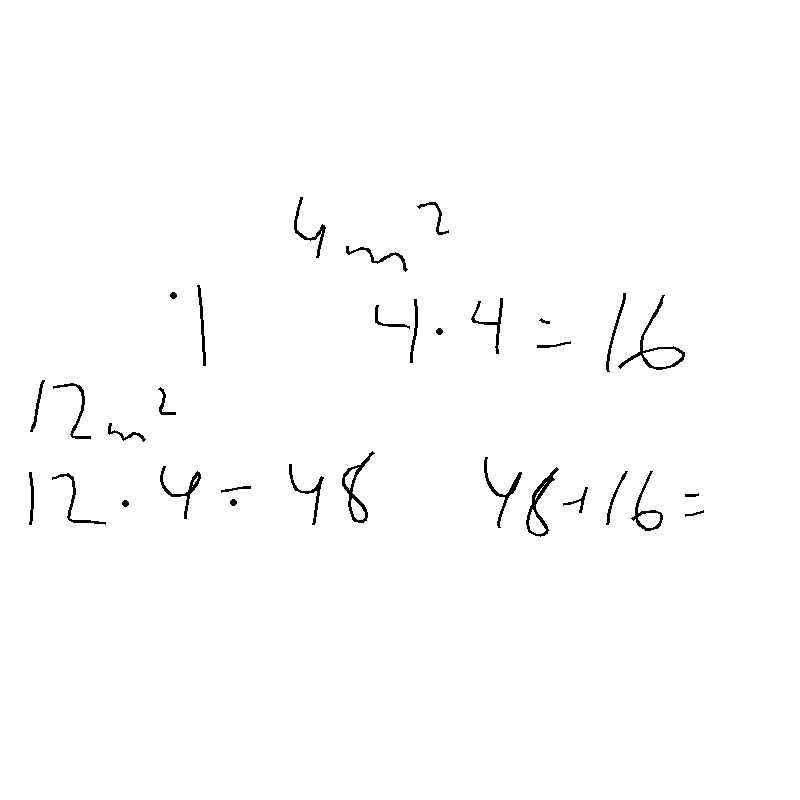 4m²
1 4·4=16
12m²
12·4=48 48+16=